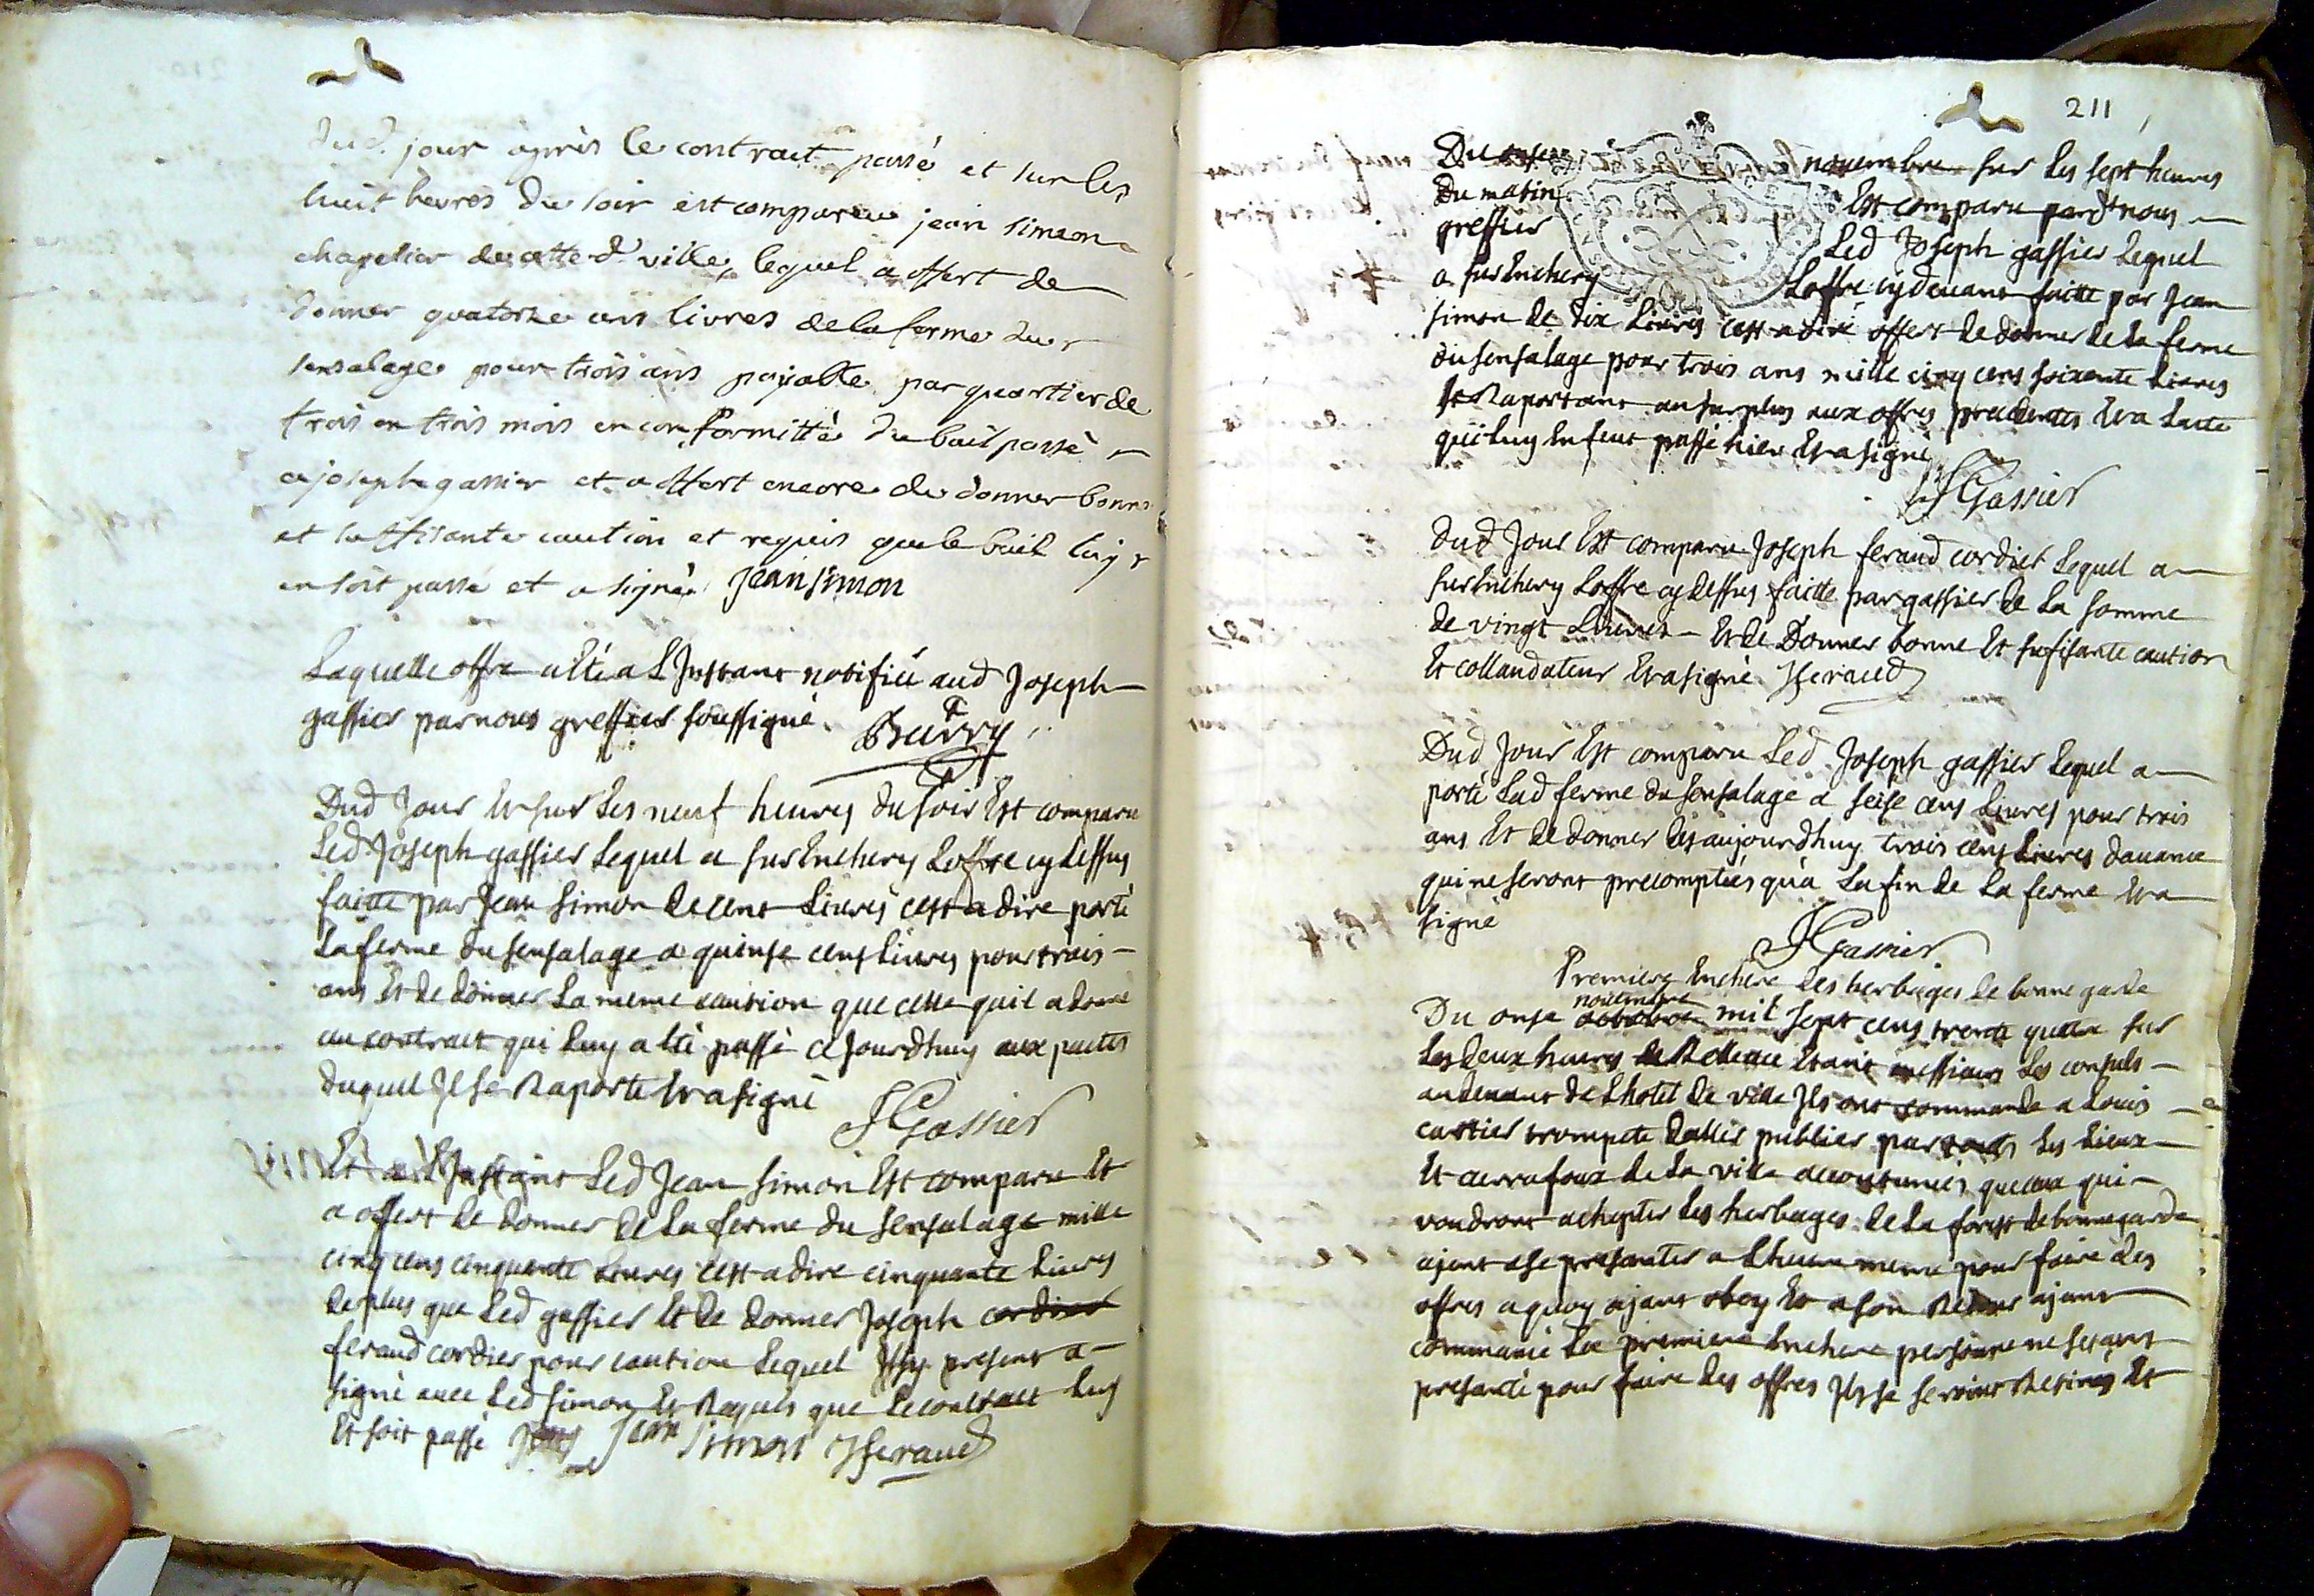 dud. jour après le contract passé et sur les
huit heures du soir est comparu jean simon
chapelier de cette d. ville, lequel a offert de
donner quatorze cens livres de la ferme du
sensalage pour trois ans payable par quartier de
trois en trois mois en conformitté du bail passé
a joseph gassier et a offert encore de donner bonne
et suffisante caution et requis que le bail luy
en soit passé et a signé jean simon
Laquelle offre a eté a L'Instant notifiée aud Joseph
gassier par nous greffier soussigné.
Dud Jour Et sur Les neuf heures du soir Est comparu
Led Joseph gassier Lequel a surenchery Loffre cy dessus
faitte par Jean simon de cent Livres cest a dire porté
La ferme du sensalage a quinse cens Livres pour trois
ans Et de donner La meme caution que celle quil a donné
au contract qui Luy a eté passé ce jourdhuy aux pactes
duquel Il se Raporte Et a signé
J Gassier
Et a L'Instant Led Jean simon Est comparu Et
a offert de donner de La ferme du sensalage mille
cinq cens cinquante Livres cest a dire cinquante Livres
de plus que Led gassier Et de donner Joseph cordier
feraud cordier pour caution Lequel Icy present a
signé avec Led simon Et Requis que Le contract Luy
Et soit passé Jean simon J feraud
211
Du onse novembre sur Les sept heures
Du matin Est comparu pard nous
greffier Led Joseph gassier Lequel
a surenchery Loffre cy devant faitte par Jean
simon de dix Livres cest a dire offert de donner de La ferme
du sensalage pour trois ans mille cinq cens soixante Livres
se Raportant au surplus aux offres precedentes Et a Lacte
qui Luy en feut passé hier Et a signé
J Gassier
Dud Jour Est comparu Joseph feraud cordier Lequel a
surenchery Loffre cy dessus faitte par gassier de La somme
de vingt Livres Et de Donner bonne Et sufisante caution
Et collaudateur Et a signé J feraud
Dud Jour Est comparu Led Joseph gassier Lequel a
porté Lad ferme du sensalage a seise cens Livres pour trois
ans Et de donner des aujourdhuy trois cens Livres davance
qui ne seront precomptées qu'a La fin de La ferme Et a
signé
J Gassier
Premiere Enchere des herbages de bonne garde
novembre
Du onse octobre mil sept cens trente quatre sur
Les deux heures de Relevée Etant messieurs Les consuls
au devant de Lhotel de ville Ils ont commandé a Louis
castier trompete daller publier par tous Les Lieux
Et carrafoux de La ville accoutumés que ceux qui
voudront achepter Les herbages de La forest de bonnegarde
ajent a se presanter a Lheure meme pour faire des
offres a quoy ajant obey Et a son Retour ajant
commancé La premiere Enchere personne ne serant
presanté pour faire des offres Ils se seroint Retirés Et